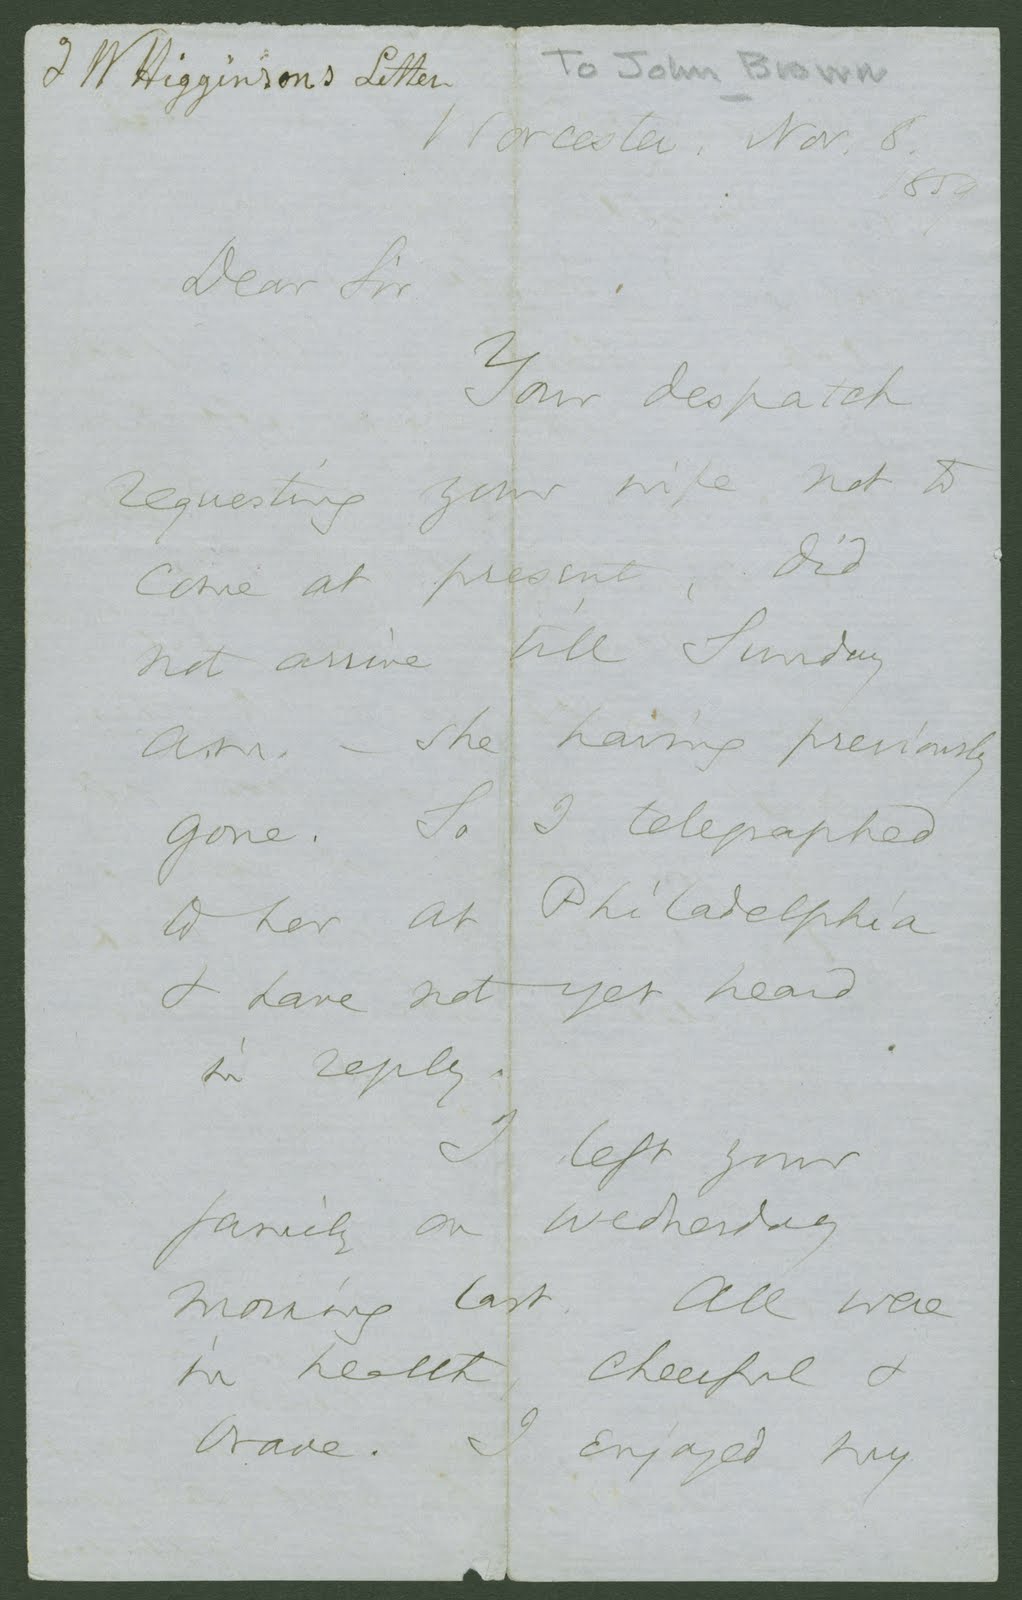 T W Higginsons Letter
To John Brown
Worcester, Nov. 8.
1859
Dear Sir
Your despatch
requesting your wife not to
come at present, did
not arrive till Sunday
- she having previously
gone. So I telegraphed
to her at Philadelphia
& have not yet heard
in reply.
I left your
family on Wednesday
morning last. All were
in health, cheerful &
brave. I enjoyed my